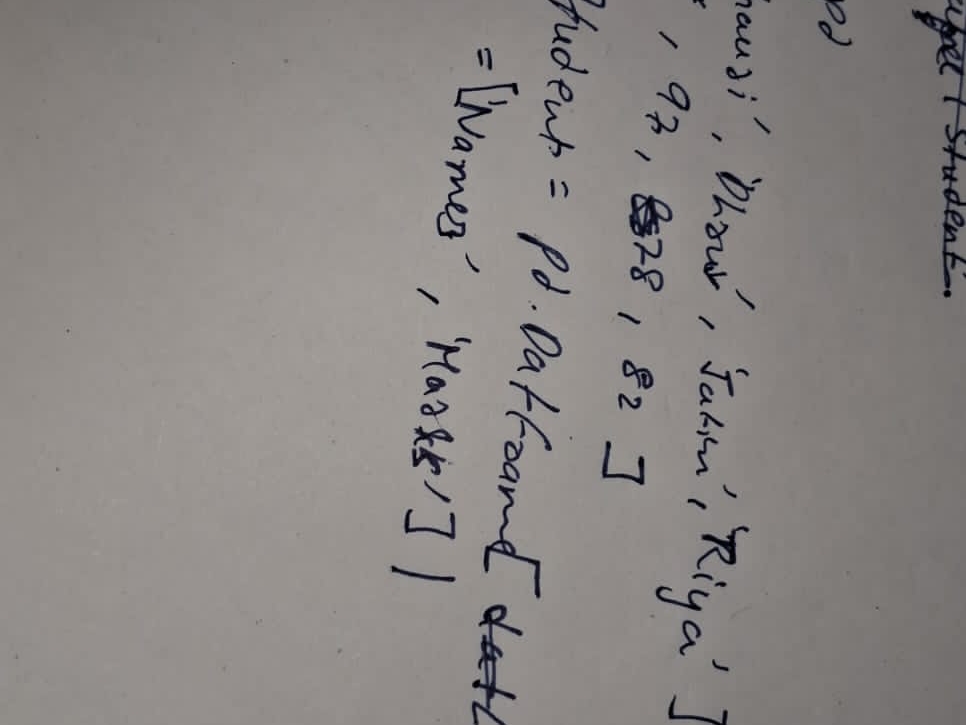 Student.
pd
'Dhruv', 'Jatin', 'Riya']
, 97, 78, 82]
Students = pd.DatFrame[
= ['Names', 'Marks']